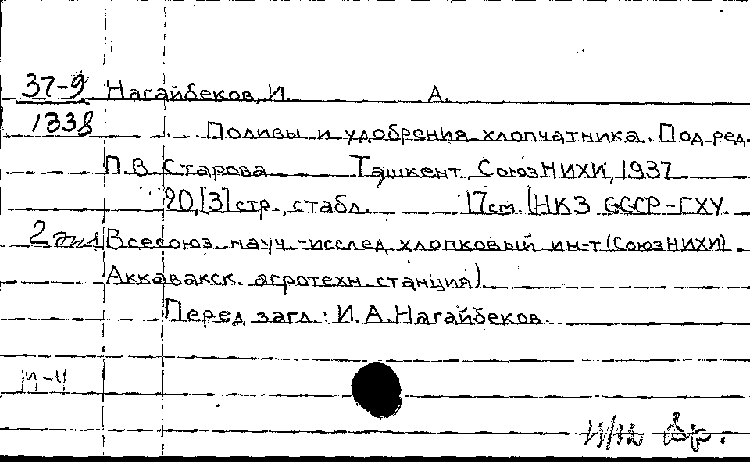 37-9 Нагайбеков, И. А.
1338 Поливы и удобрения хлопчатника. Под ред.
П.В. Старова Ташкент, СоюзНИХИ, 1937
20,[3] стр., с табл. 17 см. (НКЗ СССР-ГХУ
2 экз Всесоюз. науч.-исслед хлопковый ин-т (СоюзНИХИ)
Аккавакск. агротехн. станция)
Перед загл.: И.А. Нагайбеков.
М-4